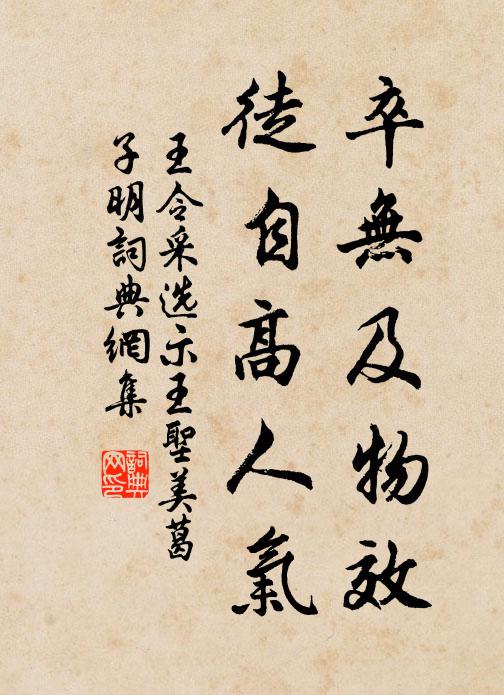 卒無及物效
徒自高人氣
王令采选示王聖美葛
子明詞典網集
詞典网印